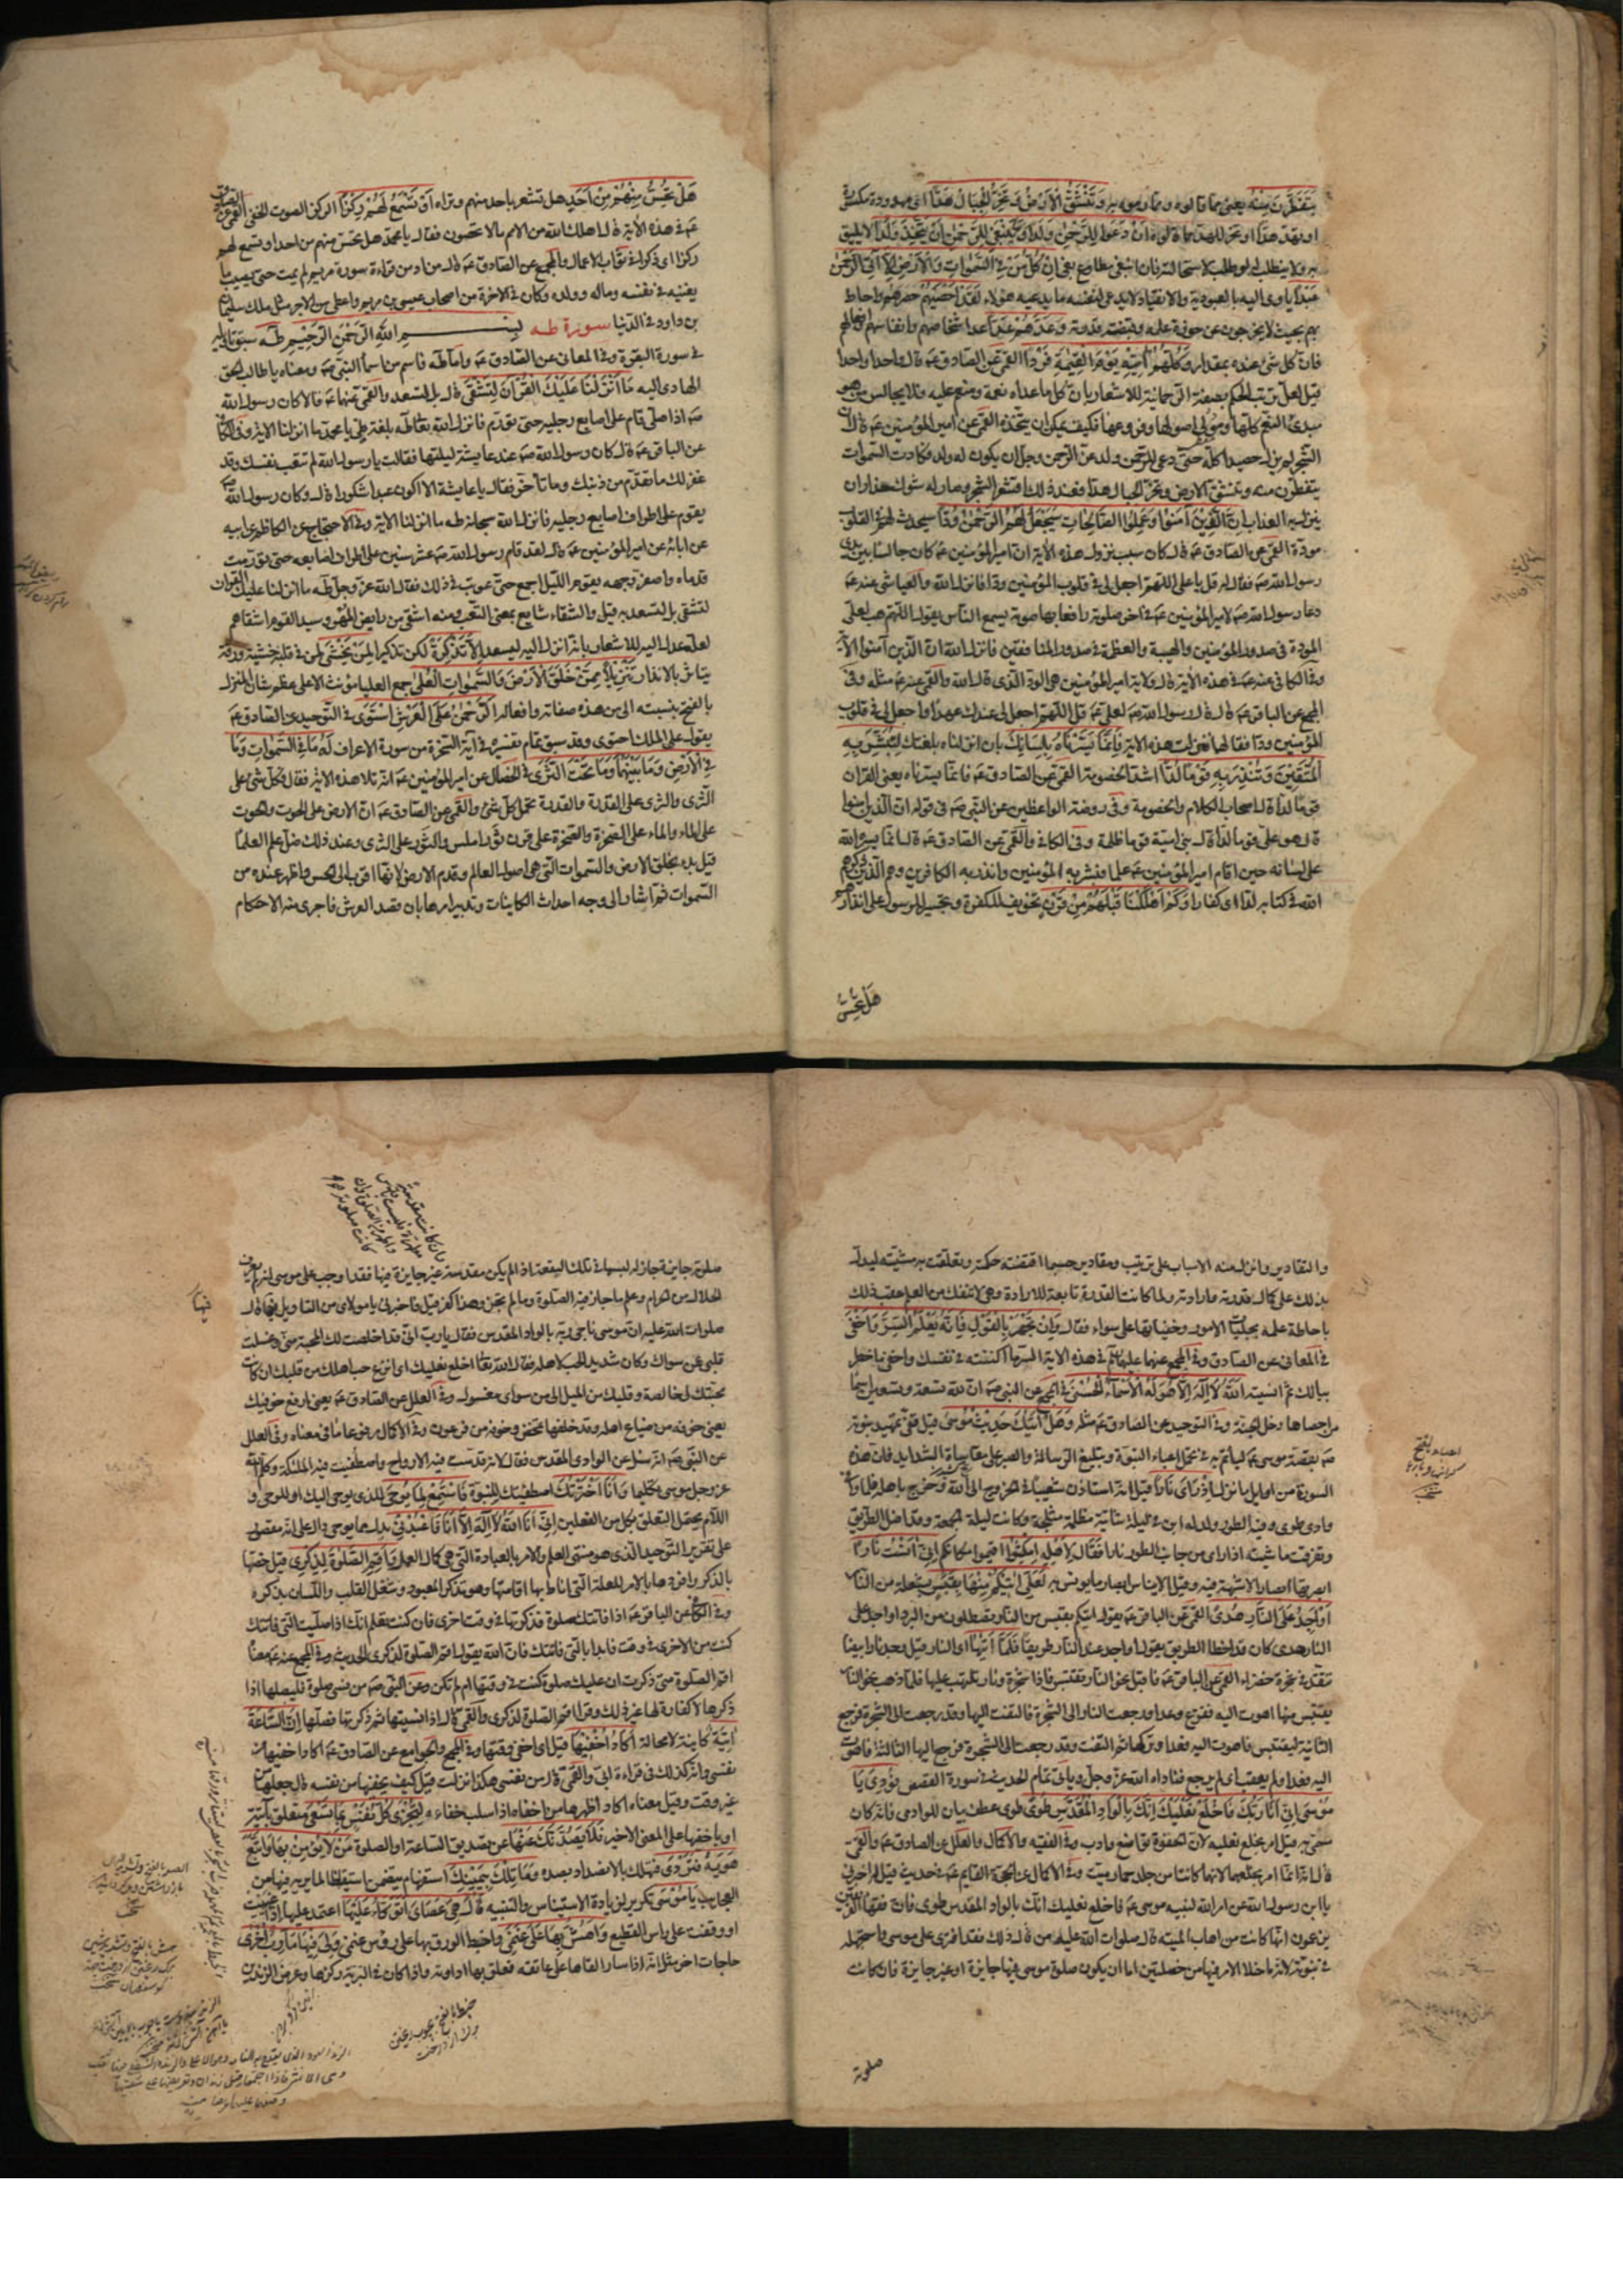 يَتَفَطَّرْنَ مِنْهُ يعنى مما قالوه ومما رموه به وَتَنْشَقُّ الْأَرْضُ وَتَخِرُّ الْجِبَالُ هَدًّا اى مهدودة مكسرة
او تهدّ هدّا او تخرّ للهدّ مما قالوه أَنْ دَعَوْا لِلرَّحْمٰنِ وَلَدًا وَمَا يَنْبَغِي لِلرَّحْمٰنِ أَنْ يَتَّخِذَ وَلَدًا لا يليق
به ولا ينطلب له لو طلب لاستحالته فان انبغى مطاوع بغى إِنْ كُلُّ مَنْ فِي السَّمٰوَاتِ وَالْأَرْضِ إِلَّا آتِي الرَّحْمٰنِ
عَبْدًا ياوى اليه بالعبودية والانقياد لا يدعى لنفسه ما يدعيه هؤلاء لَقَدْ أَحْصَاهُمْ حصرهم واحاط
بهم بحيث لا يخرجون عن حوزة علمه وقبضته قدرته وَعَدَّهُمْ عَدًّا عد اشخاصهم وانفاسهم وافعالهم
فان كل شىء عنده بمقدار وَكُلُّهُمْ آتِيهِ يَوْمَ الْقِيٰمَةِ فَرْدًا القمى عن الصادق عم قال واحدا واحدا
قيل لعل ترتب الحكم بصفة الرحمانية للاشعار بان كل ما عداه نعمة ومنعم عليه فلا يجالس من هو
مبدئ النعم كلها ومولى اصولها وفروعها فكيف يمكن ان يتخذه القمى عن امير المؤمنين عم قال ان
الشجر لم يزل حصيدا كله حتى دعى للرحمن ولد عزّ الرحمن وجلّ ان يكون له ولد فكادت السموات
يتفطرن منه وتنشق الارض وتخر الجبال هدّا فعند ذلك اقشعر الشجر وصار له شوك حذار ان
ينزل به العذاب إِنَّ الَّذِينَ آمَنُوا وَعَمِلُوا الصَّالِحَاتِ سَيَجْعَلُ لَهُمُ الرَّحْمٰنُ وُدًّا سيحدث لهم فى القلوب
مودة القمى عن الصادق عم قال كان سبب نزول هذه الاية ان امير المؤمنين عم كان جالسا بين يدى
رسول الله ص فقال له قل يا على اللهم اجعل لى فى قلوب المؤمنين ودا فانزل الله والعياشى عنه عم
دعا رسول الله ص لامير المؤمنين عم فى اخر صلوته رافعا بها صوته يسمع الناس يقول اللهم هب لعلى
المودة فى صدور المؤمنين والهيبة والعظمة فى صدور المنافقين فانزل الله ان الذين آمنوا الآية
وفى الكافى عنه عم فى هذه الاية قال ولاية امير المؤمنين هى الود الذى قال الله والقمى عنه عم مثله وفى
المجمع عن الباقر عم قال قال رسول الله ص لعلى عم قل اللهم اجعل لى عندك عهدا واجعل لى فى قلوب
المؤمنين ودا فقالهما فنزلت هذه الاية فَإِنَّمَا يَسَّرْنَاهُ بِلِسَانِكَ بان انزلناه بلغتك لِتُبَشِّرَ بِهِ
الْمُتَّقِينَ وَتُنْذِرَ بِهِ قَوْمًا لُدًّا اشداء الخصومة القمى عن الصادق عم فانما يسرناه يعنى القران
قوما لدا قال اصحاب الكلام والخصومة وفى روضة الواعظين عن النبى ص فى قوله ان الذين امنوا
قال هو على قوما لدا قال بنى امية قوما ظلمة وفى الكافى والقمى عن الصادق عم قال انما يسره الله
على لسانه حين اقام امير المؤمنين عم علما فبشر به المؤمنين وانذر به الكافرين وهم الذين ذكرهم
الله فى كتابه لدا اى كفارا وَكَمْ أَهْلَكْنَا قَبْلَهُمْ مِنْ قَرْنٍ تخويف للكفرة وتجسير للرسول على انذارهم
هَلْ تُحِسُّ
هَلْ تُحِسُّ مِنْهُمْ مِنْ أَحَدٍ هل تشعر باحد منهم وتراه أَوْ تَسْمَعُ لَهُمْ رِكْزًا الركز الصوت الخفى القمى عن الصادق
عم فى هذه الاية قال اهلك الله من الامم ما لا يحصون فقال يا محمد هل تحس منهم من احد او تسمع لهم
ركزا اى ذكرا فى ثواب الاعمال والمجمع عن الصادق عم قال من ادمن قراءة سورة مريم لم يمت حتى يصيب ما
يغنيه فى نفسه وماله وولده وكان فى الاخرة من اصحاب عيسى بن مريم واعطى من الاجر مثل ملك سليمان
بن داود فى الدنيا سورة طه بِسْمِ اللهِ الرَّحْمٰنِ الرَّحِيمِ طٰهٰ سبق تاويله
فى سورة البقرة وفى المعانى عن الصادق عم واما طه فاسم من اسماء النبى ص ومعناه يا طالب الحق
الهادى اليه مَا أَنْزَلْنَا عَلَيْكَ الْقُرْآنَ لِتَشْقٰى قال بل لتسعد والقمى عنهما عم قالا كان رسول الله
ص اذا صلى قام على اصابع رجليه حتى تورّم فانزل الله تعالى طه بلغة طى يا محمد ما انزلنا الاية وفى الكافى
عن الباقر عم قال كان رسول الله ص عند عايشة ليلتها فقالت يا رسول الله لم تتعب نفسك وقد
غفر لك ما تقدم من ذنبك وما تأخر فقال يا عايشة الا اكون عبدا شكورا قال وكان رسول الله ص
يقوم على اطراف اصابع رجليه فانزل الله سبحانه طه ما انزلنا الاية وفى الاحتجاج عن الكاظم عن ابيه
عن ابائه عن امير المؤمنين عم قال لقد قام رسول الله ص عشر سنين على اطراف اصابعه حتى تورمت
قدماه واصفر وجهه يقوم الليل اجمع حتى عوتب فى ذلك فقال الله عز وجل طه ما انزلنا عليك القران
لتشقى بل لتسعد به قيل والشقاء شايع بمعنى التعب ومنه اشقى من رايض المهر وسيد القوم اشقاهم
لعله عدل اليه للاشعار بانه انزل اليه ليسعد إِلَّا تَذْكِرَةً لكن تذكيرا لِمَنْ يَخْشٰى لمن فى قلبه خشية ورقة
يتاثر بالانذار تَنْزِيلًا مِمَّنْ خَلَقَ الْأَرْضَ وَالسَّمٰوَاتِ الْعُلٰى جمع العليا مؤنث الاعلى عظم شان المنزل
بالفتح بنسبته الى من هذه صفاته وافعاله الرَّحْمٰنُ عَلَى الْعَرْشِ اسْتَوٰى فى التوحيد عن الصادق عم
يقول على الملك احتوى وقد سبق تمام تفسيره فى آية السخرة من سورة الاعراف لَهُ مَا فِي السَّمٰوَاتِ وَمَا
فِي الْأَرْضِ وَمَا بَيْنَهُمَا وَمَا تَحْتَ الثَّرٰى فى الخصال عن امير المؤمنين عم انه تلا هذه الاية فقال فكل شىء على
الثرى والثرى على القدرة والقدرة تحمل كل شىء والقمى عن الصادق عم ان الارض على الحوت والحوت
على الماء والماء على الصخرة والصخرة على قرن ثور املس والثور على الثرى وعند ذلك ضل علم العلماء
قيل بدء بخلق الارض والسموات التى هى اصول العالم وقدم الارض لانها اقرب الى الحس واظهر عنده من
السموات ثم اشار الى وجه احداث الكاينات وتدبير امرها بان قصد العرش فاجرى منه الاحكام
والتقادير وانزل منه الاسباب على ترتيب ومقادير حسبما اقتضته حكمته وتعلقت به مشيته ليدل
بذلك على كمال قدرته وارادته ولما كانت القدرة تابعة للارادة وهى لا تنفك من العلم عقب ذلك
باحاطة علمه بجليات الامور وخفياتها على سواء فقال وَإِنْ تَجْهَرْ بِالْقَوْلِ فَإِنَّهُ يَعْلَمُ السِّرَّ وَأَخْفٰى
فى المعانى عن الصادق وفى المجمع عنهما عليهما السلم فى هذه الاية السر ما اكننته فى نفسك واخفى ما خطر
ببالك ثم انسيته اللهُ لَا إِلٰهَ إِلَّا هُوَ لَهُ الْأَسْمَاءُ الْحُسْنٰى فى المجمع عن النبى ص ان لله تسعة وتسعين اسما
من احصاها دخل الجنة وفى التوحيد عن الصادق عم مثله وَهَلْ أَتٰيكَ حَدِيثُ مُوسٰى قيل قفى تمهيد نبوته
ص بقصة موسى عم لياتم به فى تحمل اعباء النبوة وتبليغ الرسالة والصبر على مقاساة الشدايد فان هذه
السورة من اوايل ما نزل إِذْ رَاٰى نَارًا قيل انه استاذن شعيبا فى الخروج الى امه وخرج باهله فلما وافى
وادى طوى وفيه الطور ولد له ابن فى ليلة شاتية مظلمة مثلجة وكانت ليلة الجمعة وقد اضل الطريق
وتفرقت ماشيته اذ راى من جانب الطور نارا فَقَالَ لِأَهْلِهِ امْكُثُوا اقيموا مكانكم إِنِّي آنَسْتُ نَارًا
ابصرتها ابصارا لا شبهة فيه وقيل الايناس ابصار ما يونس به لَعَلِّي آتِيكُمْ مِنْهَا بِقَبَسٍ بشعلة من النار
أَوْ أَجِدُ عَلَى النَّارِ هُدًى القمى عن الباقر عم يقول اتيكم بقبس من النار تصطلون من البرد او اجد على
النار هدى كان قد اخطا الطريق يقول او اجد عند النار طريقا فَلَمَّا أَتٰيهَا اى النار قيل وجد نارا بيضا
تتقد فى شجرة خضراء القمى عن الباقر عم فاقبل نحو النار يقتبس فاذا شجرة ونار تلتهب عليها فلما ذهب نحو النار
يقتبس منها اهوت اليه ففزع وعدا ورجعت النار الى الشجرة فالتفت اليها وقد رجعت الى الشجرة فرجع
الثانية ليقتبس فاهوت اليه فعدا وتركها ثم التفت وقد رجعت الى الشجرة فرجع اليها الثالثة فاهوت
اليه فعدا ولم يعقب اى لم يرجع فناداه الله عز وجل وياتى تمام الحديث فى سورة القصص نُودِيَ يَا
مُوسٰى إِنِّي أَنَا رَبُّكَ فَاخْلَعْ نَعْلَيْكَ إِنَّكَ بِالْوَادِ الْمُقَدَّسِ طُوًى طوى عطف بيان للوادى فانه كان
سمى به قيل امر بخلع نعليه لان الحفوة تواضع وادب وفى الفقيه والاكمال والعلل عن الصادق عم والقمى
قال انه انما امر بخلعهما لانها كانتا من جلد حمار ميت وفى الاكمال عن الحجة القايم عم فى حديث قيل له اخبرنى
يا ابن رسول الله عن امر الله لنبيه موسى عم فاخلع نعليك انك بالواد المقدس طوى فان فقهاء الفريقين
يزعمون انها كانت من اهاب الميتة قال صلوات الله عليه من قال ذلك فقد افترى على موسى واستجهله
فى نبوته لانه ما خلا الامر فيها من خصلتين اما ان يكون صلوة موسى فيها جايزة او غير جايزة فان كانت
صلوته
صلوته جايزة جاز له لبسهما فى تلك البقعة اذ لم يكن مقدسة وان كانت غير جايزة فيها فقد اوجب على موسى انه لم يعرف
الحلال من الحرام وعلم ما جاز فيه الصلوة وما لم تجز وهذا كفر قيل فاخبرنى يا مولاى من التاويل فيها قال
صلوات الله عليه ان موسى ناجى ربه بالواد المقدس فقال يا رب انى قد اخلصت لك المحبة منى وغسلت
قلبى عن سواك وكان شديد الحب لاهله فقال الله تعالى اخلع نعليك اى انزع حب اهلك من قلبك ان كانت
محبتك لى خالصة وقلبك من الميل الى من سواى مغسولا وفى العلل عن الصادق عم يعنى ارفع خوفيك
يعنى خوفه من ضياع اهله وقد خلفها تمخض وخوفه من فرعون وفى الاكمال مرفوعا ما فى معناه وفى العلل
عن النبى ص انه سئل عن الوادى المقدس فقال لانه قدست فيه الارواح واصطفيت فيه الملئكة وكلم الله
عز وجل موسى تكليما وَأَنَا اخْتَرْتُكَ اصطفيتك للنبوة فَاسْتَمِعْ لِمَا يُوحٰى للذى يوحى اليك او للوحى و
اللام يحتمل التعلق بكل من الفعلين إِنَّنِي أَنَا اللهُ لَا إِلٰهَ إِلَّا أَنَا فَاعْبُدْنِي بدل مما يوحى دال على انه مقصور
على تقرير التوحيد الذى هو منتهى العلم والامر بالعبادة التى هى كمال العمل وَأَقِمِ الصَّلٰوةَ لِذِكْرِي قيل خصها
بالذكر وافردها بالامر للعلة التى اناط بها اقامتها وهو تذكر المعبود وشغل القلب واللسان بذكره
وفى الكافى عن الباقر عم اذا فاتتك صلوة فذكرتها فى وقت اخرى فان كنت تعلم انك اذا صليت التى فاتتك
كنت من الاخرى فى وقت فابدا بالتى فاتتك فان الله يقول اقم الصلوة لذكرى الحديث وفى المجمع عنه عم معناه
اقم الصلوة متى ذكرت ان عليك صلوة كنت فى وقتها ام لم تكن وعن النبى ص من نسى صلوة فليصلها اذا
ذكرها لا كفارة لها غير ذلك وقرا اقم الصلوة لذكرى والقمى قال اذا نسيتها ثم ذكرتها فصلها إِنَّ السَّاعَةَ
آتِيَةٌ كاينة لا محالة أَكَادُ أُخْفِيهَا قيل اى اخفى وقتها وفى المجمع والجوامع عن الصادق عم اكاد اخفيها من
نفسى وانه كذلك فى قراءة ابى والقمى قال من نفسى هكذا نزلت قيل كيف يخفيها من نفسه قال جعلها من
غير وقت وقيل معناه اكاد اظهرها من اخفاه اذا سلب خفاءه لِتُجْزٰى كُلُّ نَفْسٍ بِمَا تَسْعٰى متعلق باتية
او باخفيها على المعنى الاخير فَلَا يَصُدَّنَّكَ عَنْهَا عن تصديق الساعة او الصلوة مَنْ لَا يُؤْمِنُ بِهَا وَاتَّبَعَ
هَوٰيهُ فَتَرْدٰى فتهلك بالانصداد بصده وَمَا تِلْكَ بِيَمِينِكَ استفهام يتضمن استيقاظا لما يريه فيها من
العجايب يَا مُوسٰى تكرير لزيادة الاستيناس والتنبيه قَالَ هِيَ عَصَايَ أَتَوَكَّؤُا عَلَيْهَا اعتمد عليها اذا عييت
او وقفت على راس القطيع وَأَهُشُّ بِهَا عَلٰى غَنَمِي واخبط الورق بها على رؤس غنمى وَلِيَ فِيهَا مَآرِبُ أُخْرٰى
حاجات اخر مثل انه اذا سار القاها على عاتقه فعلق بها اداوته واذا كان فى البرية ركزها وعرض الزندين
فيها